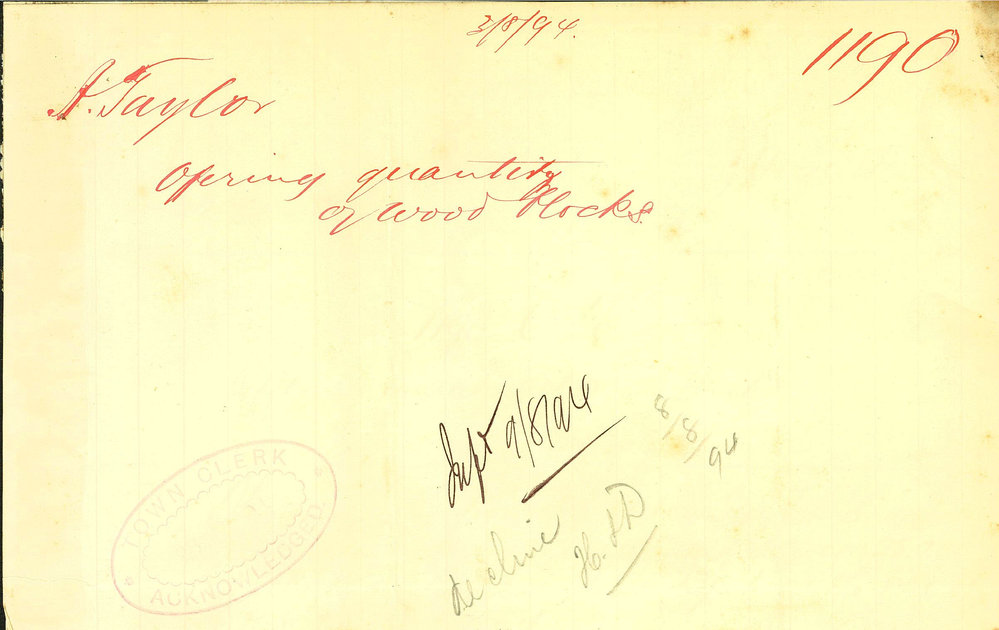 3/8/94.
1190
A. Taylor
Offering quantity
of wood blocks.
9/8/94
8/8/94
decline
TOWN CLERK
ACKNOWLEDGED